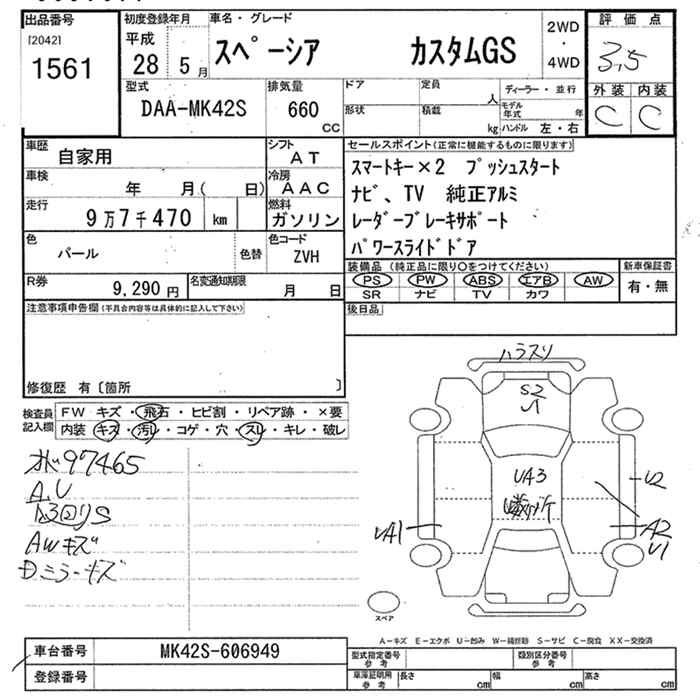 出品番号
[2042]
1561
初度登録年月
平成
28 5月
車名・グレード
スペーシア カスタムGS
2WD
・
4WD
評価点
3.5
外装 内装
C C
型式
DAA-MK42S
排気量
660
CC
ドア
定員
人
形状
積載
kg
ディーラー・並行
モデル年式
年
ハンドル 左・右
車歴
自家用
シフト
AT
車検
年 月( 日)
冷房
AAC
走行
9万7千470 km
燃料
ガソリン
色
パール
色替
色コード
ZVH
R券
9,290円
名変通知期限
月 日
セールスポイント(正常に機能するものに限ります)
スマートキー×2 プッシュスタート
ナビ、TV 純正アルミ
レーダーブレーキサポート
パワースライドドア
装備品(純正品に限り○をつけてください)
PS PW ABS エアB AW
SR ナビ TV カワ
新車保証書
有・無
後日品
注意事項申告欄(不具合内容等は具体的に記入して下さい)
修復歴 有〔箇所 〕
検査員記入欄
FW キズ・飛石・ヒビ割・リペア跡・×要
内装 キズ・汚レ・コゲ・穴・スレ・キレ・破レ
97465
A.U
AWキズ
ミラーキズ
ハラスリ
S2
U1
UA3
U2
UA1
A2
U1
スペア
A-キズ E-エクボ U-凹み W-補修跡 S-サビ C-腐食 XX-交換済
車台番号
MK42S-606949
登録番号
型式指定番号
参考
類別区分番号
参考
車庫証明用
参考
長さ cm
幅 cm
高さ cm